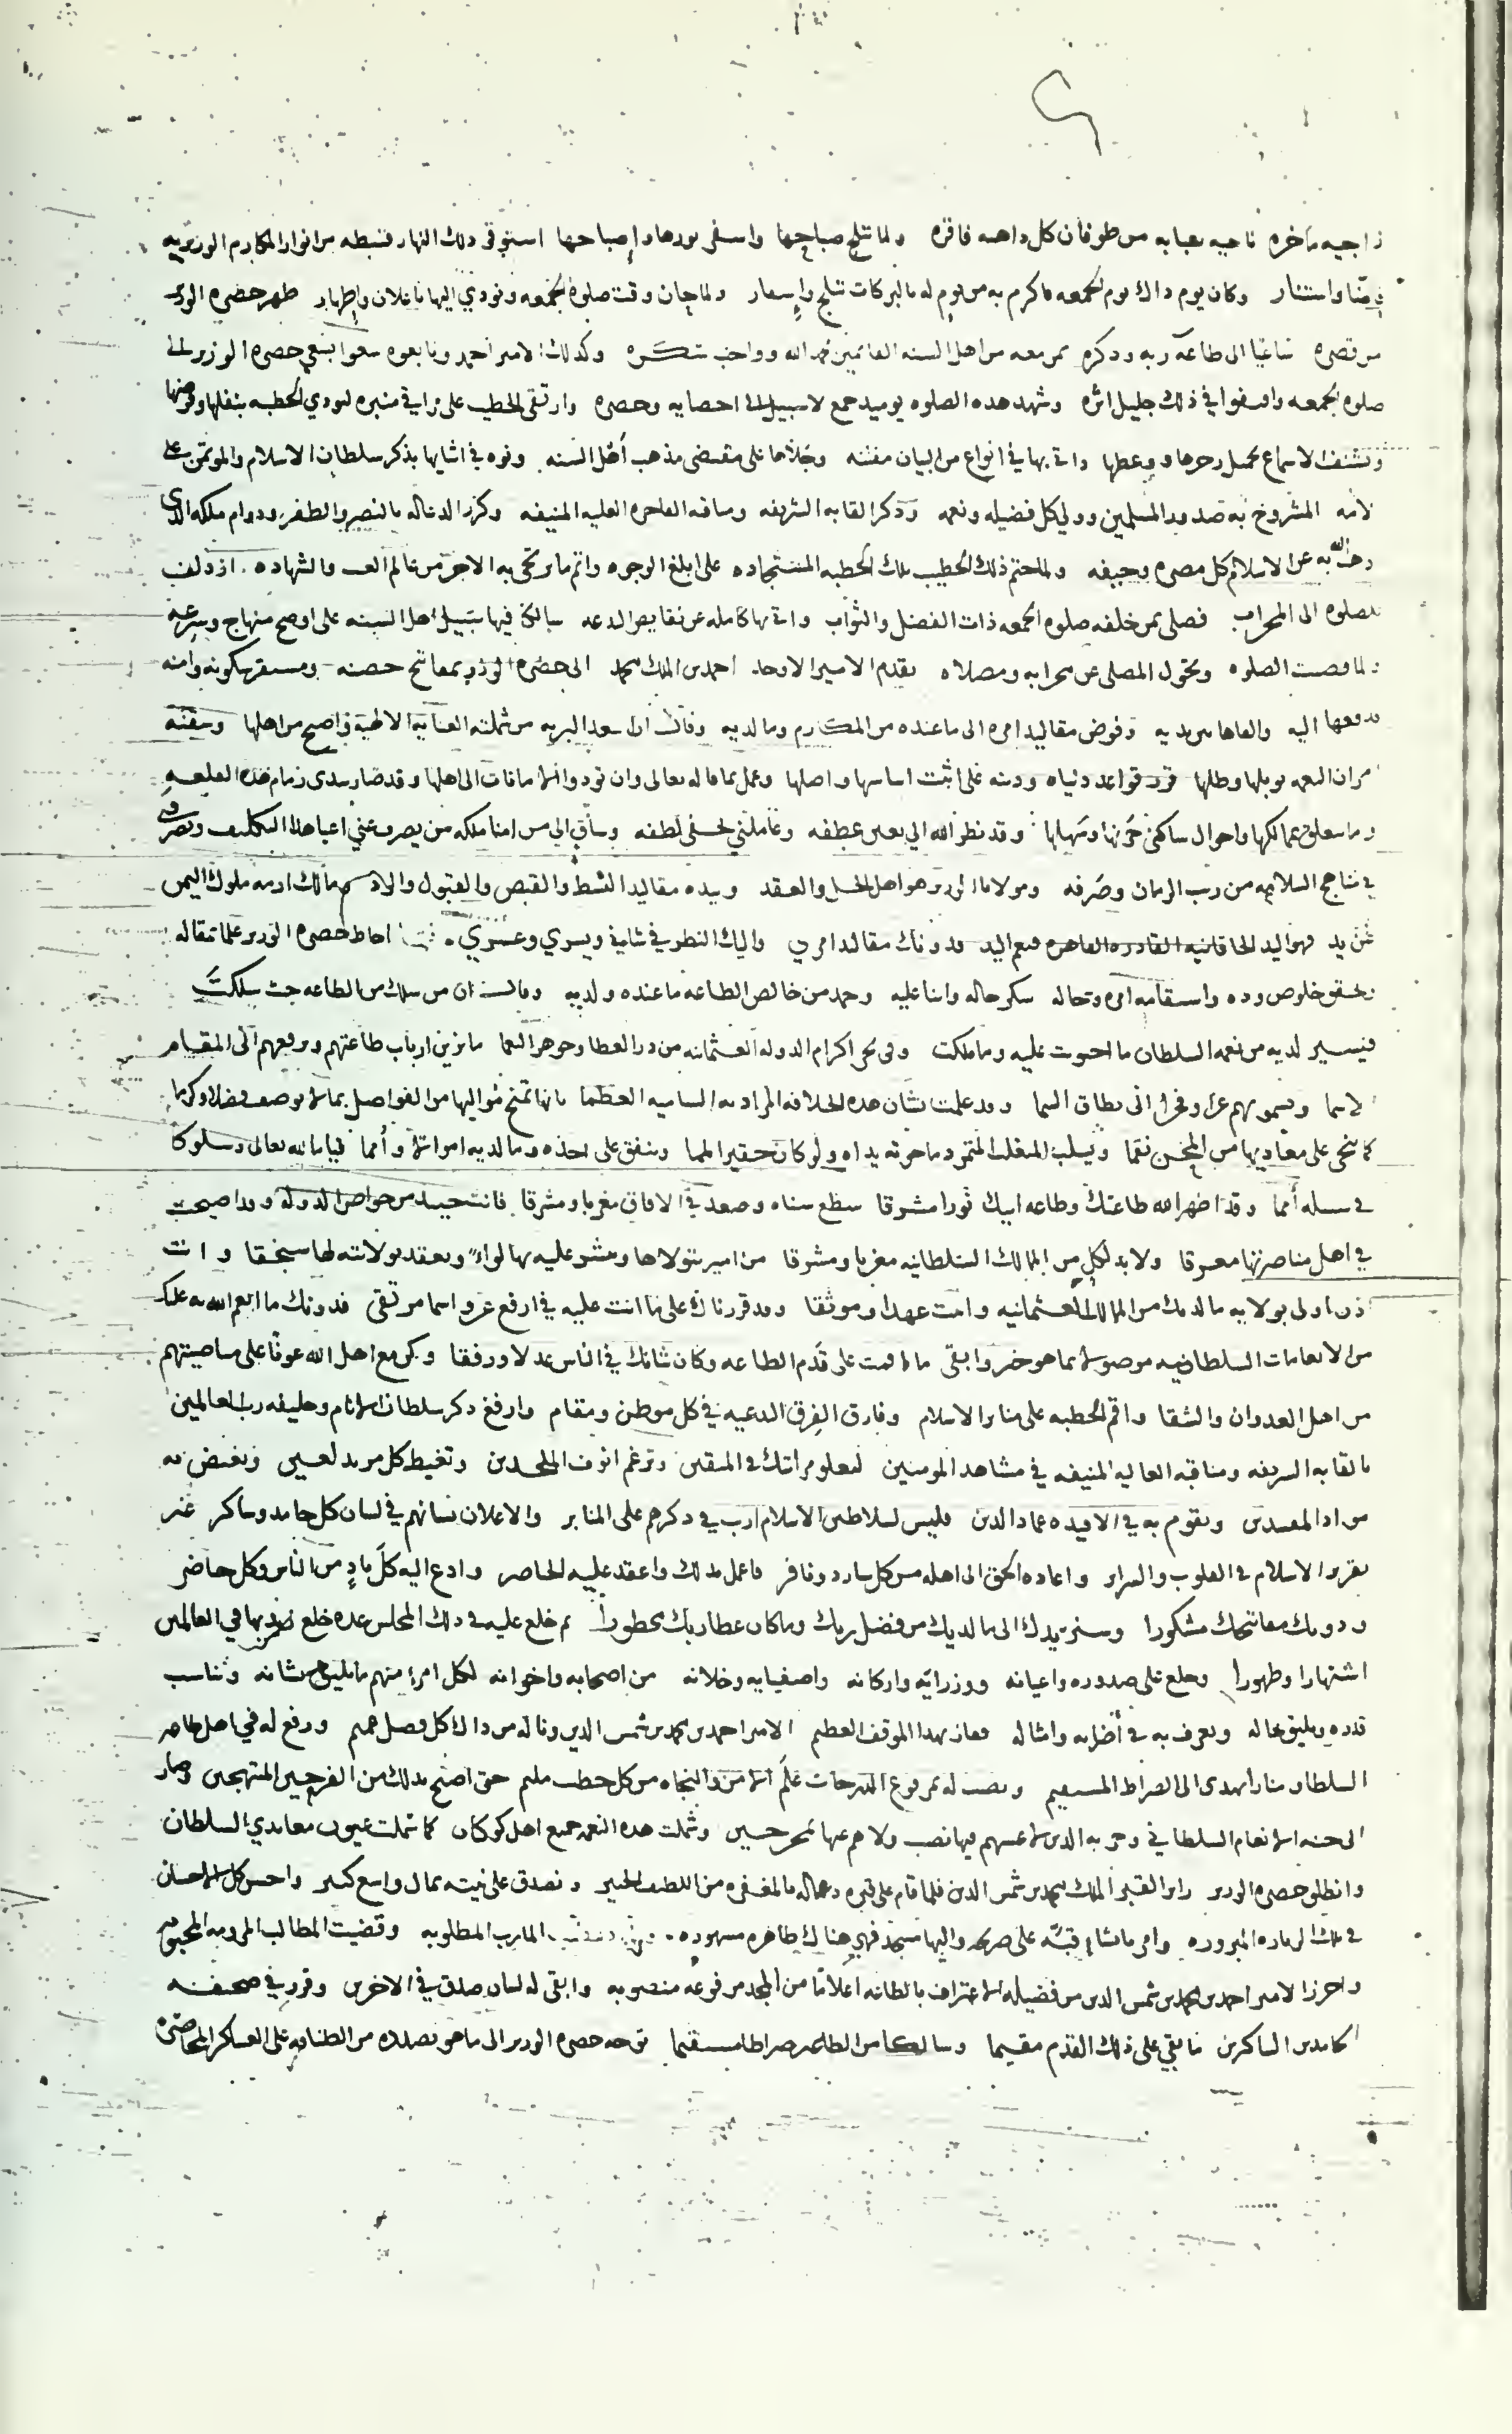 ماخره ناجيه بعبابه من طوفان كل داهيه فاقره ولما تبلج صباحها واسفر نورها وإصباحها استوفى ذلك النهار قسطه من انوار المكارم الوزيريه
واستنار وكان يوم ذاك يوم الجمعه فاكرم به من يوم له بالبركات تبلج وإسفار ولما حان وقت صلوة الجمعه ونودي اليها باعلان وإظهار ظهر حضرة الوزير
من قصره ساعيًا الى طاعة ربه وذكره بمن معه من اهل السنه القائمين بحمد الله وواجب شكره وكذلك الامير احمد وتابعوه سعوا بسعي حضرة الوزير الى
صلوة الجمعه واقتفوا في ذلك جليل اثره وشهد هذه الصلوه يوميد جمع لا سبيل الى احصايه وحصره وارتقى الخطيب على مراقي منبره ليودي الخطبه بنفلها وفرضها
وتشنف الاسماع بجميل زجرها ووعظها واتى بها في انواع من البيان مفننه وجلاها على مقتضى مذهب أهل السنه ونوه في اثنايها بذكر سلطان الاسلام والموتمن على
الامه المشروح به صدور المسلمين وولي كل فضيله ونعمه وذكر القابه الشريفه ومناقبه الفاخره العليه المنيفه وكرر الدعا له بالنصر والظفر ودوام ملكه الذي
الله به عن الاسلام كل مضره وحيفه ولما ختم ذلك الخطيب تلك الخطبه المستجاده على ابلغ الوجوه واتم ما يرتجى به الاجر من عالم الغيب والشهاده. ازدلف
للصلوه الى المحراب فصلى بمن خلفه صلوة الجمعه ذات الفضل والثواب واتى بها كامله عن نقايص البدعه سالكا فيها سبيل اهل السنه على اوضح منهاج وشرعه
ولما قضيت الصلوه وتحول المصلي عن محرابه ومصلاه تقدم الامير الاوحد احمد بن الملك محمد الى حضرة الوزير بمفاتيح حصنه ومستقر سكونه وامنه
فدفعها اليه والقاها بين يديه وفوض مقاليد امره الى ما عنده من المكارم وما لديه وقال ان اسعد البريه من شملته العنايه الالهيه واصبح من اهلها
قرر قواعد دنياه ودينه على اثبت اساسها واصلها وعمل بما قاله تعالى وان تودوا الامانات الى اهلها وقد صار بيدي زمام هذه القلعه
وما يتعلق بممالكها واحوال ساكني حزنها وسهلها وقد نظر الله الي بعين عطفه وعاملني بخفي لطفه وساق الي من امنا ملكه من يصرف عني اعبا هذا التكليف
في مناهج السلامه من ريب الزمان وصرفه ومولانا الوزير هو اهل الحل والعقد وبيده مقاليد البسط والقبض والقبول والرد ممالك ازمة ملوك اليمن
عن يد فهو اليد الخاقانيه القادره القاهره فنعم اليد فدونك مقاليد امري واليك النظر في شاني ويسري وعسري. احاط حضرة الوزير علما بمقاله
وتحقق خلوص وده واستقامة امره وحاله شكر حاله واثنا عليه وحمد من خالص الطاعه ما عنده ولديه وقال ان من سلك من الطاعه حيث سلكت
فيسير لديه من نعمة السلطان ما احتوت عليه وما ملكت وفي بحر اكرام الدوله العثمانيه من درر العطا وجوهر النعما ما يزين ارباب طاعتهم ويرفعهم الى المقام
الاسما ويسمو بهم عزا وفخرا الى نطاق السما وقد علمت بشان هذه الخلافه المراديه الساميه العظما بانها تمنح مواليها من الفواصل بما لا يوصف فضلا وكرما
كما تنحي على معاديها من المحن نقما ويسلب المتقلب المتمرد ما حوته يداه ولو كان حقيرا لمما وينفق على اخذه وما لديه اموالا وأمما قياما لله تعالى وسلوكا
في سبيله أمما وقد اظهر الله طاعتك وطاعة ابيك نورا مشرقا سطع سناه وصعد في الافاق مغربا ومشرقا فانت حينئذ من خواص الدوله وقد اصبحت
في اهل مناصرتها معرقا ولا بد لكل من الممالك السلطانيه مغربا ومشرقا من امير يتولاها وينشر عليه بها لواء ويعقد بولايته لها سنجقا وانت
اذن اولى بولايه ما لديك من الممالك العثمانيه واثبت عهدا وموثقا وقد قررناك على ما انت عليه في ارفع عز واسما مرتقى فدونك ما انعم الله به عليك
من الانعامات السلطانيه موصولا بما هو خير وابقى ما اقمت على قدم الطاعه وكان شانك في الناس عدلا ورفقا وكن مع اهل الله عونا على مناصبتهم
من اهل العدوان والشقا واقم الخطبه على منابر الاسلام وفارق الفرق البدعيه في كل موطن ومقام وارفع ذكر سلطان الانام وخليفه رب العالمين
بالقابه الشريفه ومناقبه العاليه المنيفه في مشاهد المومنين لتعلو مراتبك في المتقين وترغم انوف الملحدين وتغيظ كل مريد لعين
مواد المفسدين وتقوم به في الافيده عماد الدين فليس لسلاطين الاسلام ارب في ذكرهم على المنابر والاعلان بشانهم في لسان كل حامد وشاكر غير
تقرير الاسلام في القلوب والسراير واعاده الحق الى اهله من كل شارد ونافر فاعمل بذلك واعقد عليه الخناصر وادع اليه كل بادٍ من الناس وكل حاضر
ودونك مفاتيحك مشكورا وسنزيدك الى ما لديك من فضل ربك وما كان عطا ربك محظورا ثم خلع عليه في ذلك المجلس عدة خلع بها في العالمين
اشتهارا وظهورا وخلع على صدوره واعيانه ووزرائه واركانه واصفيايه وخلانه من اصحابه واخوانه لكل امرء منهم ما يليق بشانه ويناسب
قدره ويليق بحاله ويعرف به في أضرابه وامثاله ففاز بهذا الموقف العظيم الامير احمد بن محمد بن شمس الدين وناله من ذاك كل فضل عميم ورفع له في اهل طاعة
السلطان منارا يهدى الى الصراط المستقيم ونصب له بمرفوع الدرجات علم الامن والنجاه من كل خطب ملم حتى اصبح بذلك من الفرحين المبتهجين وصار
الى جنة الانعام السلطاني وحزبه الذين لا يمسهم فيها نصب ولا هم عنها بمخرجين وشملت هذه النعم جميع اهل كوكبان كما شملت عيون معاندي السلطان
وانطلق حضرة الوزير زايرا لقبر الملك محمد بن شمس الدين فلما قام على قبره دعا له بالمغفره من اللطيف الخبير وتصدق على نيته بمال واسع كثير واحسن كل الاحسان
في تلك الزياره المبروره وامر بانشا قبة على ضريحه واليها مسجد فهي هناك ظاهره مشهوره. المارب المطلوبه وقضيت المطالب المرومه المحبوبه
واحرز الامير احمد بن محمد بن شمس الدين من فضيله الاعتراف بالطاعه اعلاما من المجد مرفوعه منصوبه وابقى له لسان صدق في الاخرين وقرر في صحيفة
الحامدين الشاكرين ما بقي على ذلك القدم مقيما وسالكا من الطاعه صراطا مستقيما توجه حضرة الوزير الى ما هو بصدده من العسكر المحاصره